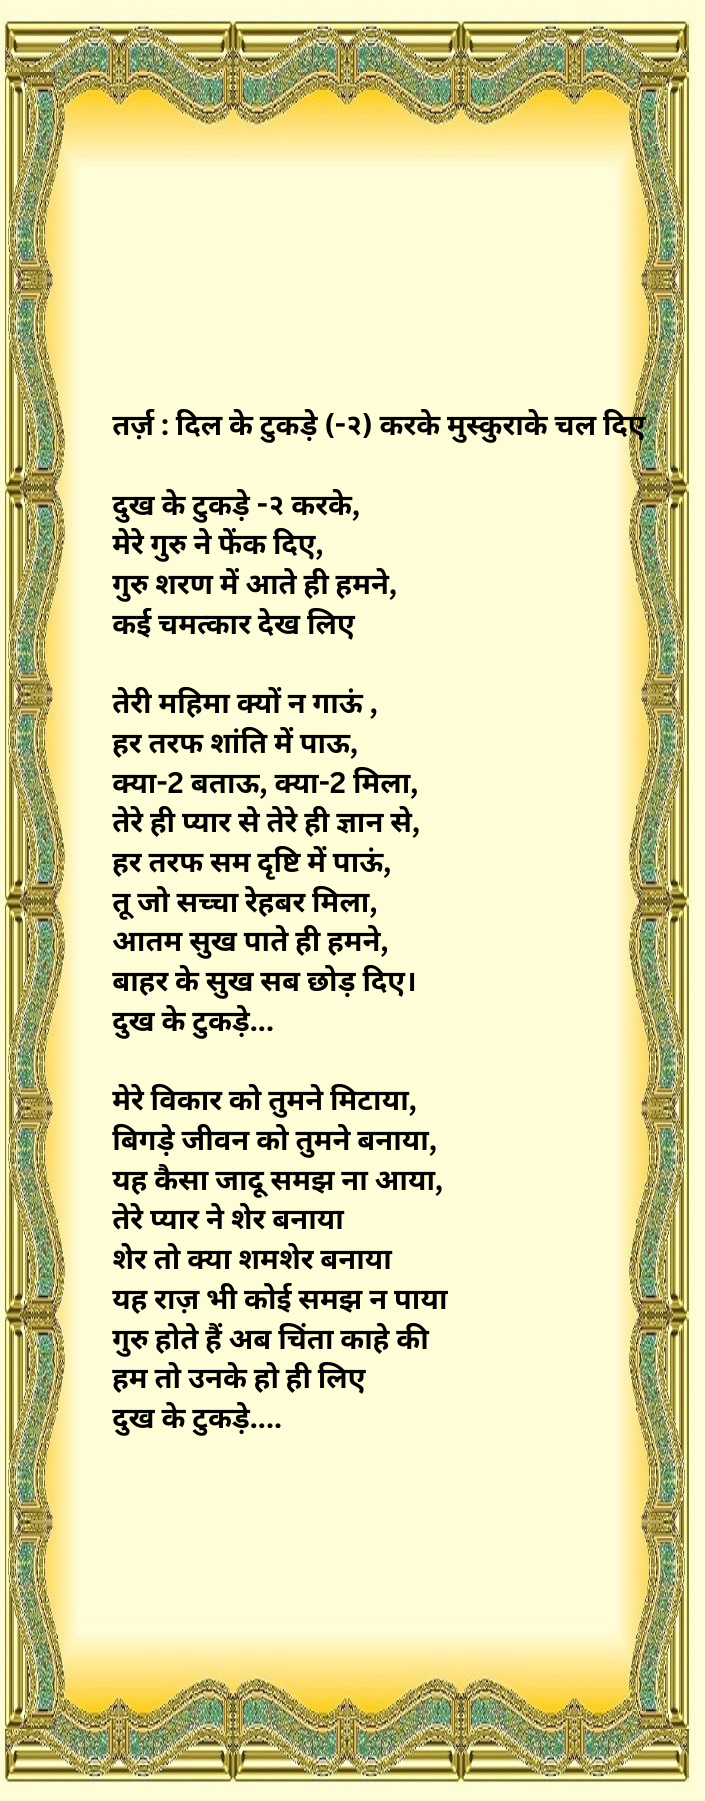 तर्ज़ : दिल के टुकड़े (-२) करके मुस्कुराके चल दिए
दुख के टुकड़े -२ करके,
मेरे गुरु ने फेंक दिए,
गुरु शरण में आते ही हमने,
कई चमत्कार देख लिए
तेरी महिमा क्यों न गाऊं ,
हर तरफ शांति में पाऊ,
क्या-2 बताऊ, क्या-2 मिला,
तेरे ही प्यार से तेरे ही ज्ञान से,
हर तरफ सम दृष्टि में पाऊं,
तू जो सच्चा रेहबर मिला,
आतम सुख पाते ही हमने,
बाहर के सुख सब छोड़ दिए।
दुख के टुकड़े...
मेरे विकार को तुमने मिटाया,
बिगड़े जीवन को तुमने बनाया,
यह कैसा जादू समझ ना आया,
तेरे प्यार ने शेर बनाया
शेर तो क्या शमशेर बनाया
यह राज़ भी कोई समझ न पाया
गुरु होते हैं अब चिंता काहे की
हम तो उनके हो ही लिए
दुख के टुकड़े....